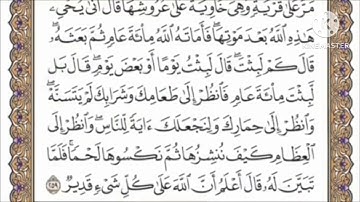 مَرَّ عَلَىٰ قَرْيَةٍ وَهِيَ خَاوِيَةٌ عَلَىٰ عُرُوشِهَا قَالَ أَنَّىٰ يُحْيِۦ
هَٰذِهِ ٱللَّهُ بَعْدَ مَوْتِهَا ۖ فَأَمَاتَهُ ٱللَّهُ مِا۟ئَةَ عَامٍ ثُمَّ بَعَثَهُۥ ۖ
قَالَ كَمْ لَبِثْتَ ۖ قَالَ لَبِثْتُ يَوْمًا أَوْ بَعْضَ يَوْمٍ ۖ قَالَ بَل
لَّبِثْتَ مِا۟ئَةَ عَامٍ فَٱنظُرْ إِلَىٰ طَعَامِكَ وَشَرَابِكَ لَمْ يَتَسَنَّهْ ۖ
وَٱنظُرْ إِلَىٰ حِمَارِكَ وَلِنَجْعَلَكَ ءَايَةً لِّلنَّاسِ ۖ وَٱنظُرْ إِلَى
ٱلْعِظَامِ كَيْفَ نُنشِزُهَا ثُمَّ نَكْسُوهَا لَحْمًا ۚ فَلَمَّا
تَبَيَّنَ لَهُۥ قَالَ أَعْلَمُ أَنَّ ٱللَّهَ عَلَىٰ كُلِّ شَىْءٍ قَدِيرٌ ۝٢٥٩
KINEMASTER